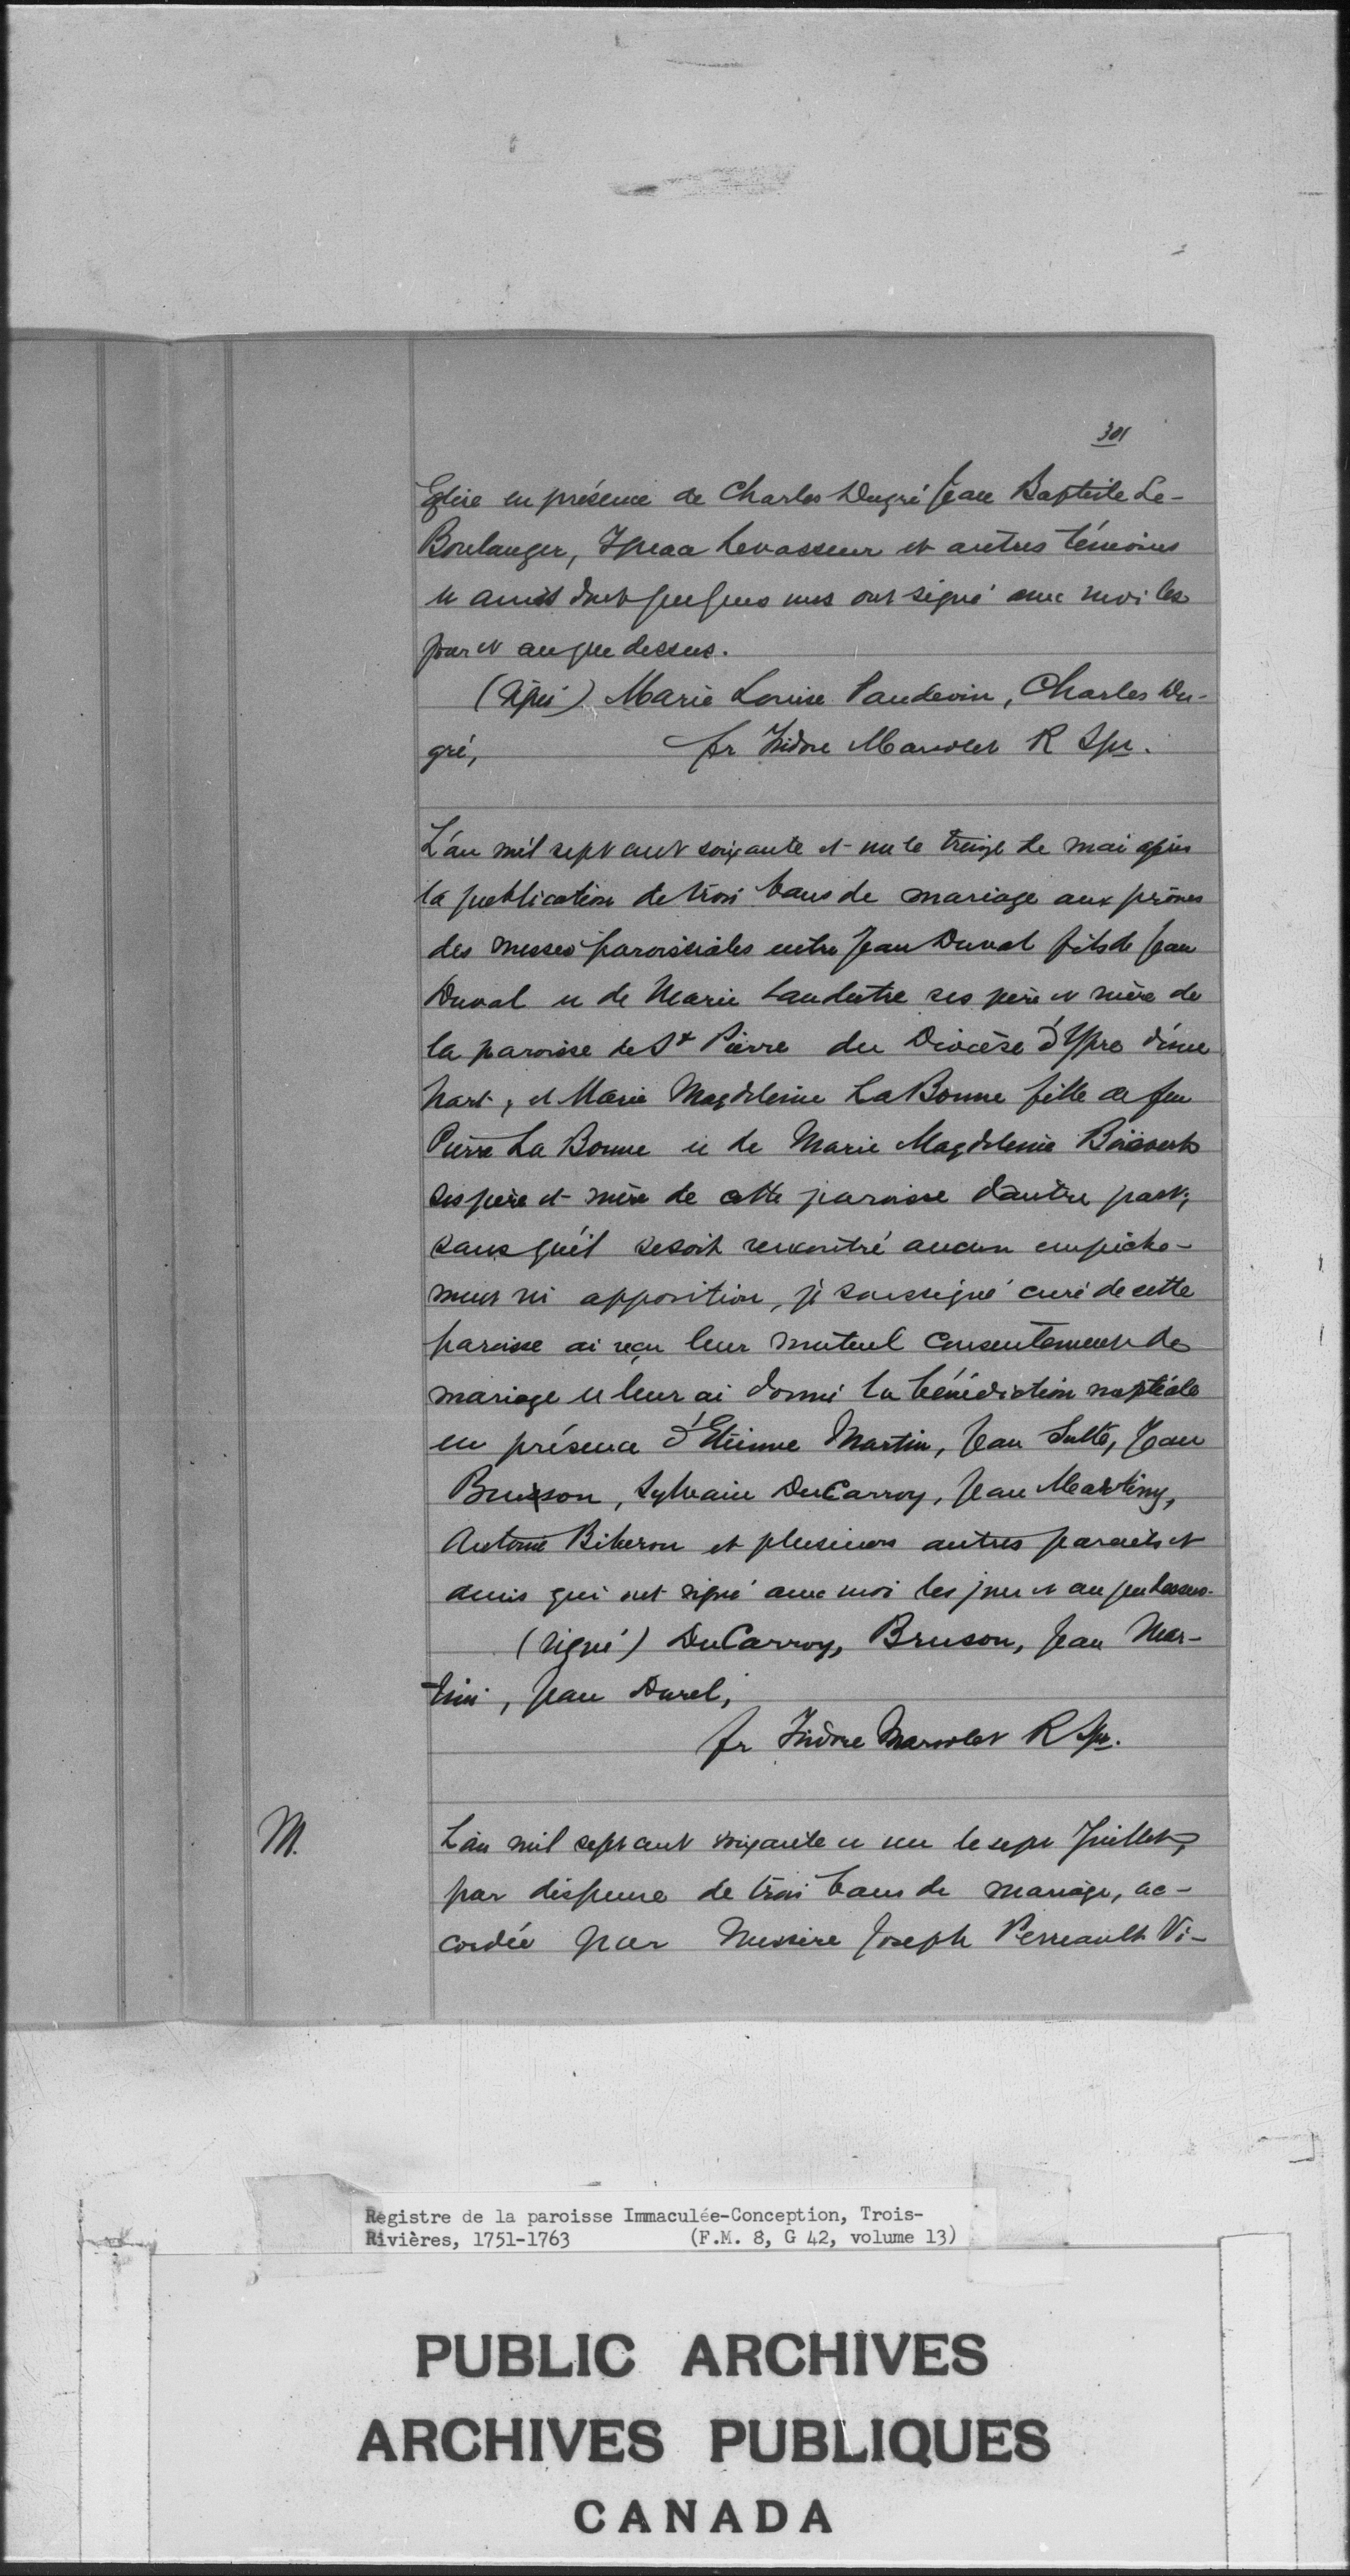 301
Eglise en présence de Charles Dugré Jean Baptiste Le-
Boulanger, Ignace Levasseur et autres témoins
et amis dont quelques uns ont signé avec moi les
jour et an que dessus.
(Signé) Marie Louise Paudevin, Charles Du-
gré, fr Isidore Marsolet R Spr.
L'an mil sept cent soixante et un le treize de mai après
la publication de trois bans de mariage aux prônes
des messes paroissiales entre Jean Duval fils de Jean
Duval et de Marie Laudutre ses père et mère de
la paroisse de St Pierre du Diocèse d'Ypre d'une
part, et Marie Magdeleine LaBonne fille de feu
Pierre La Bonne et de Marie Magdeleine Boisvert
ses père et mère de cette paroisse d'autre part,
sans qu'il se soit rencontré aucun empêche-
ment ni apposition, je soussigné curé de cette
paroisse ai reçu leur mutuel consentement de
mariage et leur ai donné la bénédiction nuptiale
en présence d'Etienne Martin, Jean Sulte, Jean
Brusson, Sylvain DuCarroy, Jean Martiny,
Antoine Biberon et plusieurs autres parents et
amis qui ont signé avec moi les jour et an que dessus.
(Signé) DuCarroy, Bruson, Jean Mar-
tini, Jean Durel,
fr Isidore Marsolet R Spr.
M.
L'an mil sept cent soixante et un le sept Juillet,
par dispense de trois bans de mariage, ac-
cordée par Messire Joseph Perreault Vi-
Registre de la paroisse Immaculée-Conception, Trois-
Rivières, 1751-1763 (F.M. 8, G 42, volume 13)
PUBLIC ARCHIVES
ARCHIVES PUBLIQUES
CANADA